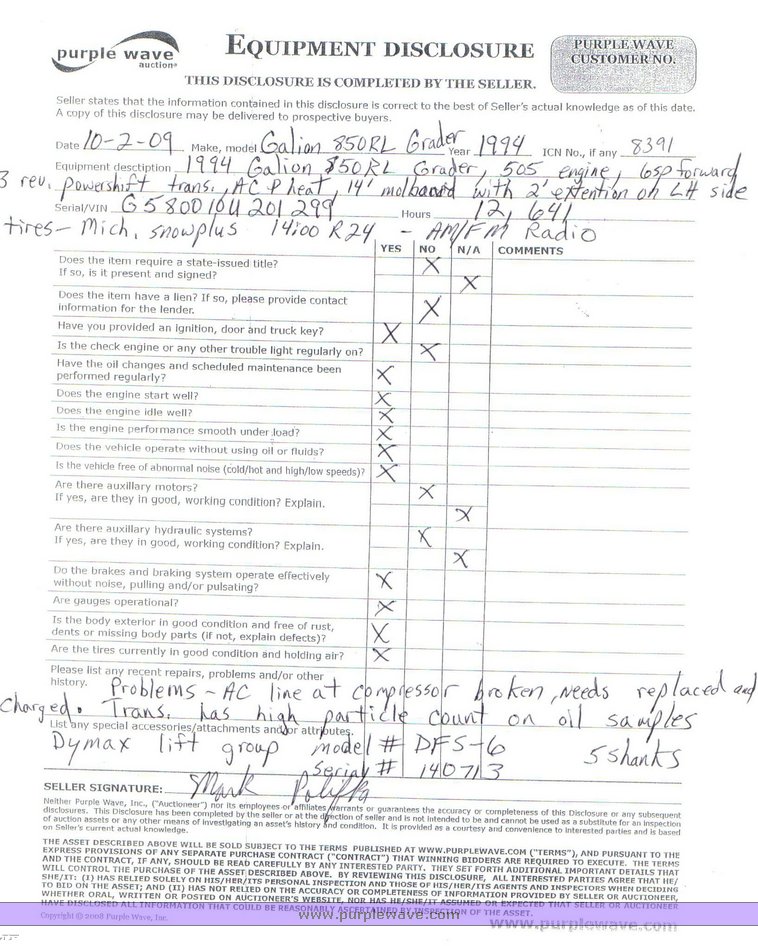 purple wave
auction®
EQUIPMENT DISCLOSURE
PURPLE WAVE
CUSTOMER NO.
THIS DISCLOSURE IS COMPLETED BY THE SELLER.
Seller states that the information contained in this disclosure is correct to the best of Seller's actual knowledge as of this date.
A copy of this disclosure may be delivered to prospective buyers.
Date 10-2-09 Make, model Galion 850RL Grader Year 1994 ICN No., if any 8391
Equipment desctiption 1994 Galion 850RL Grader, 505 engine, 6sp forward
3 rev. powershift trans., AC & heat, 14' molboard with 2' extention on LH side
Serial/VIN G5800104201299 Hours 12,641
tires - Mich. snowplus 14:00 R24 - AM/FM Radio
YES NO N/A COMMENTS
Does the item require a state-issued title? X
If so, is it present and signed? X
Does the item have a lien? If so, please provide contact
information for the lender. X
Have you provided an ignition, door and truck key? X
Is the check engine or any other trouble light regularly on? X
Have the oil changes and scheduled maintenance been
performed regularly? X
Does the engine start well? X
Does the engine idle well? X
Is the engine performance smooth under load? X
Does the vehicle operate without using oil or fluids? X
Is the vehicle free of abnormal noise (cold/hot and high/low speeds)? X
Are there auxillary motors? X
If yes, are they in good, working condition? Explain. X
Are there auxillary hydraulic systems? X
If yes, are they in good, working condition? Explain. X
Do the brakes and braking system operate effectively
without noise, pulling and/or pulsating? X
Are gauges operational? X
Is the body exterior in good condition and free of rust,
dents or missing body parts (if not, explain defects)? X
Are the tires currently in good condition and holding air? X
Please list any recent repairs, problems and/or other
history. Problems - AC line at compressor broken, needs replaced and
charged. Trans. has high particle count on oil samples
List any special accessories/attachments and/or attributes.
Dymax lift group model # DFS-6 5 Shanks
Serial # 140713
SELLER SIGNATURE: Mark
Neither Purple Wave, Inc., ("Auctioneer") nor its employees or affiliates warrants or guarantees the accuracy or completeness of this Disclosure or any subsequent
disclosures. This Disclosure has been completed by the seller or at the direction of seller and is not intended to be and cannot be used as a substitute for an inspection
of auction assets or any other means of investigating an asset's history and condition. It is provided as a courtesy and convenience to interested parties and is based
on Seller's current actual knowledge.
THE ASSET DESCRIBED ABOVE WILL BE SOLD SUBJECT TO THE TERMS PUBLISHED AT WWW.PURPLEWAVE.COM ("TERMS"), AND PURSUANT TO THE
EXPRESS PROVISIONS OF ANY SEPARATE PURCHASE CONTRACT ("CONTRACT") THAT WINNING BIDDERS ARE REQUIRED TO EXECUTE. THE TERMS
AND THE CONTRACT, IF ANY, SHOULD BE READ CAREFULLY BY ANY INTERESTED PARTY. THEY SET FORTH ADDITIONAL IMPORTANT DETAILS THAT
WILL CONTROL THE PURCHASE OF THE ASSET DESCRIBED ABOVE. BY REVIEWING THIS DISCLOSURE, ALL INTERESTED PARTIES AGREE THAT HE/
SHE/IT: (I) HAS RELIED SOLELY ON HIS/HER/ITS PERSONAL INSPECTION AND THOSE OF HIS/HER/ITS AGENTS AND INSPECTORS WHEN DECIDING
TO BID ON THE ASSET; AND (II) HAS NOT RELIED ON THE ACCURACY OR COMPLETENESS OF INFORMATION PROVIDED BY SELLER OR AUCTIONEER,
WHETHER ORAL, WRITTEN OR POSTED ON AUCTIONEER'S WEBSITE, NOR HAS HE/SHE/IT ASSUMED OR EXPECTED THAT SELLER OR AUCTIONEER
HAVE DISCLOSED ALL INFORMATION THAT COULD BE REASONABLY ASCERTAINED BY INSPECTION OF THE ASSET.
Copyright © 2008 Purple Wave, Inc.
www.purplewave.com
www.purplewave.com